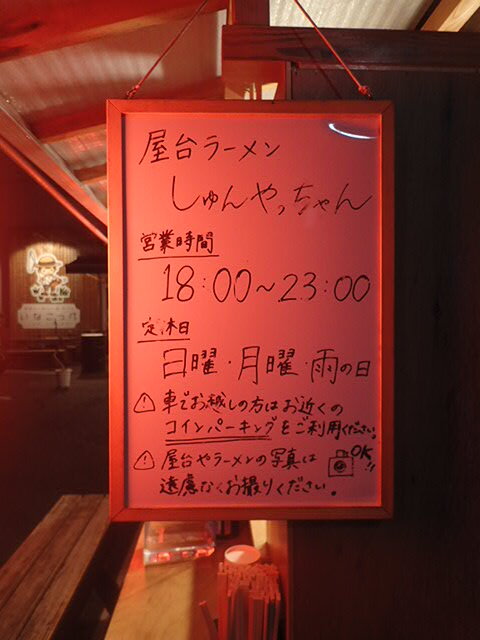 屋台ラーメン
しゅんやっちゃん
営業時間
18:00~23:00
定休日
日曜・月曜・雨の日
⚠車でお越しの方はお近くの
コインパーキングをご利用ください。
⚠屋台やラーメンの写真は
OK!!
遠慮なくお撮りください。